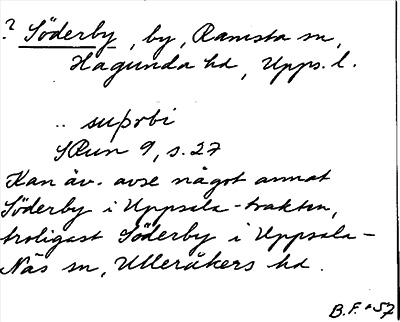 ? Söderby, by, Ramsta sn,
Hagunda hd, Upps. l.
.. suþrbi
SRun 9, s. 27
Kan äv. avse något annat
Söderby i Uppsala-trakten,
troligast Söderby i Uppsala-
Näs sn, Ulleråkers hd.
B.F. -57